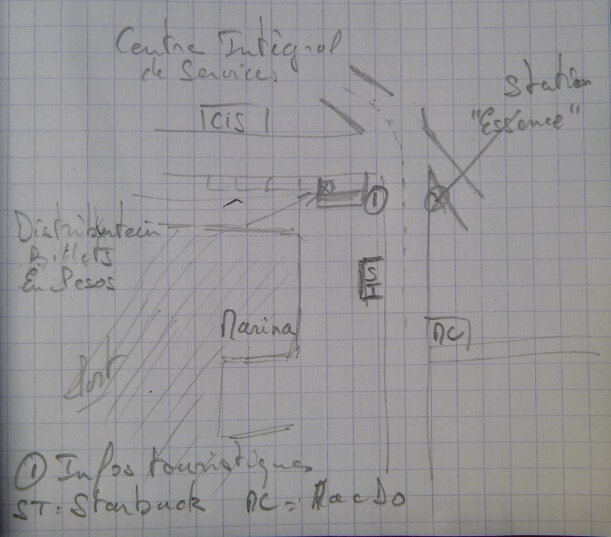 Centre Intégral
de Services
Station
"Essence"
CIS
1
Distributeur
Billets
En Pesos
ST
Marina
MC
Port
1 Infos touristiques
ST = Starback MC = MacDo